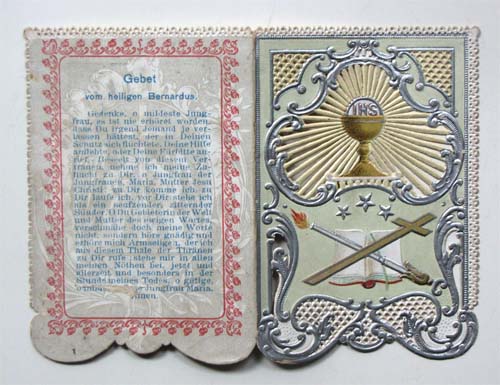 Gebet
vom heiligen Bernardus.
Gedenke, o mildeste Jung-
frau, es ist nie erhöret worden,
dass Du irgend Jemand je ver-
lassen hättest, der in Deinen
Schutz sich flüchtete, Deine Hilfe
anflehte, oder Deine Fürbitte an-
rief. Beseelt von diesem Ver-
trauen, nehme ich meine Zu-
flucht zu Dir, o Jungfrau der
Jungfrauen, Maria, Mutter Jesu
Christi; zu Dir komme ich, zu
Dir laufe ich, vor Dir stehe ich
als ein seufzender, zitternder
Sünder. O Du Gebieterin der Welt
und Mutter des ewigen Wortes,
verschmähe doch meine Worte
nicht, sondern höre gnädig und
erhöre mich Armseligen, der ich
aus diesem Thale der Thränen
zu Dir rufe, stehe mir in allen
meinen Nöthen bei, jetzt und
allezeit und besonders in der
Stunde meines Todes, o gütige,
Jungfrau Maria.
IHS